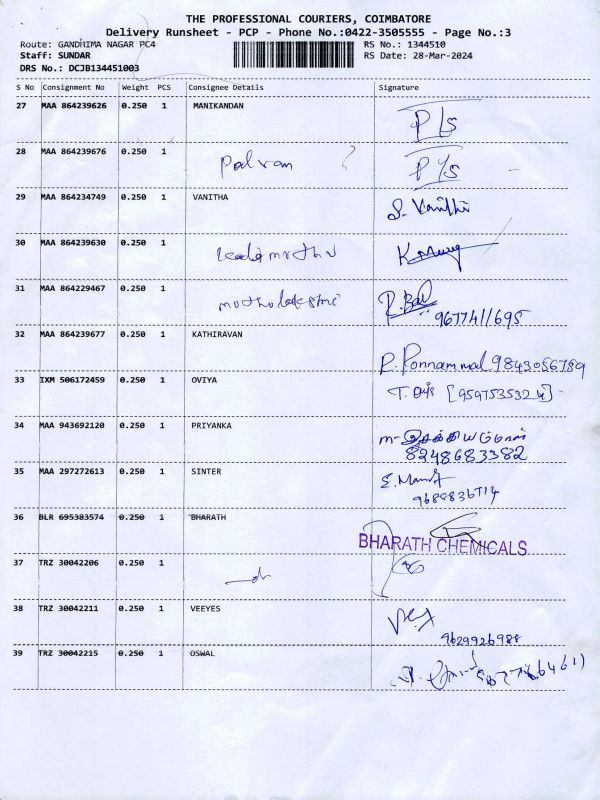 THE PROFESSIONAL COURIERS, COIMBATORE
Delivery Runsheet - PCP - Phone No.:0422-3505555 - Page No.:3
Route: GANDHIMA NAGAR PC4 RS No.: 1344510
Staff: SUNDAR RS Date: 28-Mar-2024
DRS No.: DCJB134451003
S No Consignment No Weight PCS Consignee Details Signature
27 MAA 864239626 0.250 1 MANIKANDAN P/S
28 MAA 864239676 0.250 1 P/S
29 MAA 864234749 0.250 1 VANITHA S. Vanitha
30 MAA 864239630 0.250 1
31 MAA 864229467 0.250 1 R. Bal
9677411695
32 MAA 864239677 0.250 1 KATHIRAVAN P. Ponnammal 9843056789
33 IXM 506172459 0.250 1 OVIYA [9597535324]
34 MAA 943692120 0.250 1 PRIYANKA
8248683382
35 MAA 297272613 0.250 1 SINTER
36 BLR 695383574 0.250 1 BHARATH
BHARATH CHEMICALS
37 TRZ 30042206 0.250 1
38 TRZ 30042211 0.250 1 VEEYES
9629926988
39 TRZ 30042215 0.250 1 OSWAL